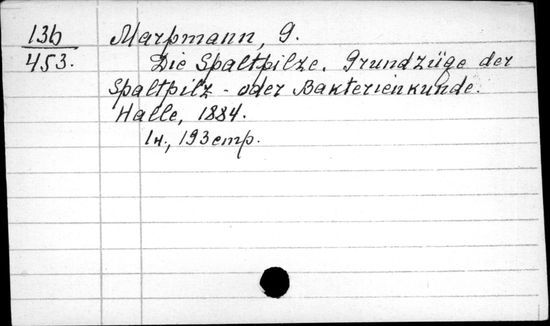 136 Marpmann, G.
453. Die Spaltpilze. Grundzüge der
Spaltpilz - oder Bakterienkunde.
Halle, 1884.
1н., 193 стр.